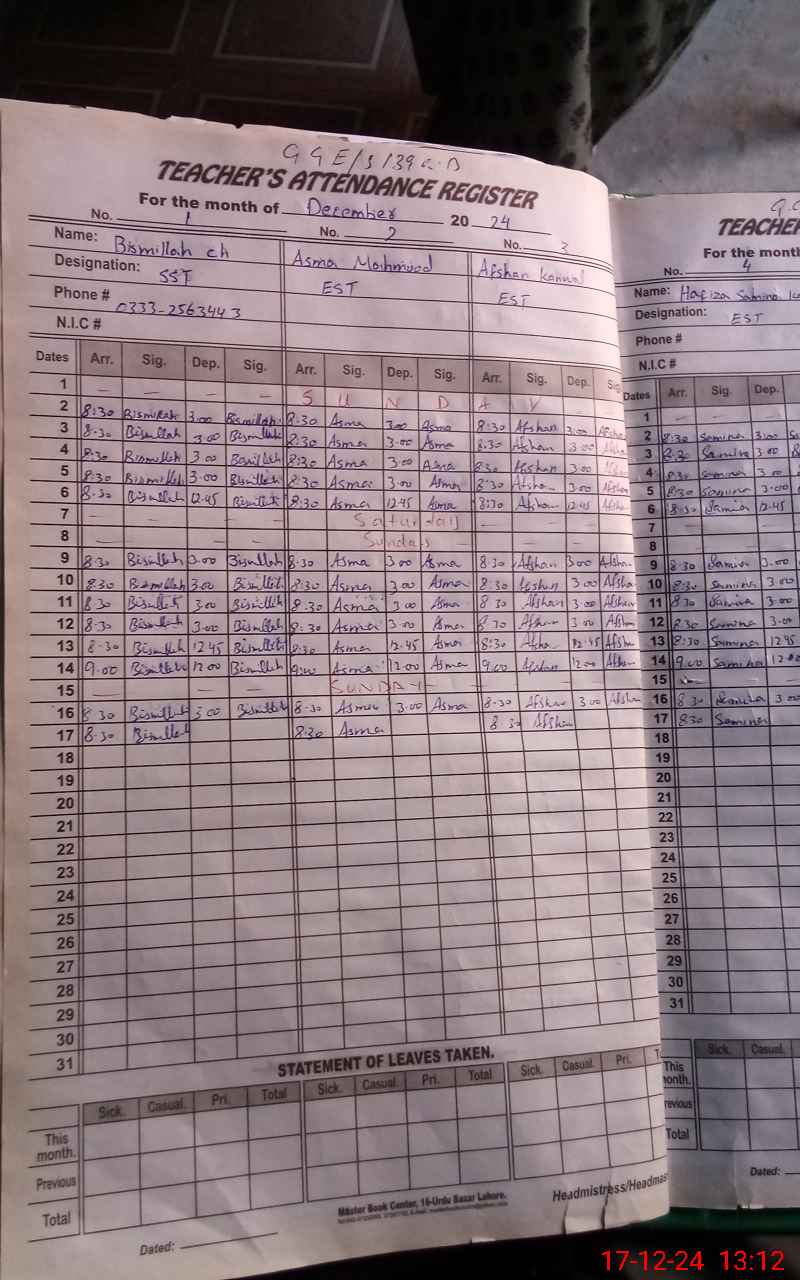 TEACHER'S ATTENDANCE REGISTER
For the month of December 2024
No. 1 No. 2 No. 3
Name: Bismillah ch Asma Mahmood Afshan Kanwal
Designation: SST EST EST
Phone # 0333-2563443
N.I.C #
Dates Arr. Sig. Dep. Sig. Arr. Sig. Dep. Sig. Arr. Sig. Dep. Sig
1 — — — — S U N D A Y
2 8:30 Bismillah 3.00 Bismillah 8.30 Asma 3.00 Asma 8:30 Afshan 3.00 Afshan
3 8.30 Bismillah 3.00 Bismillah 8:30 Asma 3.00 Asma 8:30 Afshan 3.00 Afshan
4 8:30 Bismillah 3.00 Bismillah 8:30 Asma 3.00 Asma 8:30 Afshan 3.00 Afshan
5 8:30 Bismillah 3.00 Bismillah 8:30 Asma 3.00 Asma 8:30 Afshan 3.00 Afshan
6 8.30 Bismillah 12.45 Bismillah 8:30 Asma 12.45 Asma 8:30 Afshan 12.45 Afshan
7 — — — Saturday — — — —
8 — — — Sunday — — — —
9 8.30 Bismillah 3.00 Bismillah 8.30 Asma 3.00 Asma 8.30 Afshan 3.00 Afshan
10 8.30 Bismillah 3.00 Bismillah 8:30 Asma 3.00 Asma 8:30 Afshan 3.00 Afshan
11 8.30 Bismillah 3.00 Bismillah 8.30 Asma 3.00 Asma 8.30 Afshan 3.00 Afshan
12 8.30 Bismillah 3.00 Bismillah 8.30 Asma 3.00 Asma 8.30 Afshan 3.00 Afshan
13 8.30 Bismillah 12.45 Bismillah 8:30 Asma 12.45 Asma 8:30 Afshan 12.45 Afshan
14 9.00 Bismillah 12.00 Bismillah 9.00 Asma 12.00 Asma 9.00 Afshan 12.00 Afshan
15 — — — SUNDAY — — — —
16 8.30 Bismillah 3.00 Bismillah 8.30 Asma 3.00 Asma 8.30 Afshan 3.00 Afshan
17 8.30 Bismillah 8:30 Asma 8.30 Afshan
18
19
20
21
22
23
24
25
26
27
28
29
30
31
STATEMENT OF LEAVES TAKEN.
Sick. Casual. Pri. Total Sick. Casual. Pri. Total Sick. Casual. Pri.
This month.
Previous
Total
Master Book Center, 16-Urdu Bazar Lahore.
Headmistress/Headmas
Dated:
TEACHE
For the month
No. 4
Name: Hafiza Samina
Designation: EST
Phone #
N.I.C #
Dates Arr. Sig. Dep.
1 — — —
2 8:30 Samina 3.00
3 8.30 Samina 3.00
4 8.30 Samina 3.00
5 8:30 Samina 3.00
6 8:30 Samina 12.45
7 — — —
8 — — —
9 8.30 Samina 3.00
10 8:30 Samina 3.00
11 8.30 Samina 3.00
12 8.30 Samina 3.00
13 8:30 Samina 12.45
14 9.00 Samina 12.00
15 — — —
16 8.30 Samina 3.00
17 8.30 Samina
18
19
20
21
22
23
24
25
26
27
28
29
30
31
Sick. Casual.
This month.
revious
Total
Dated:
17-12-24 13:12